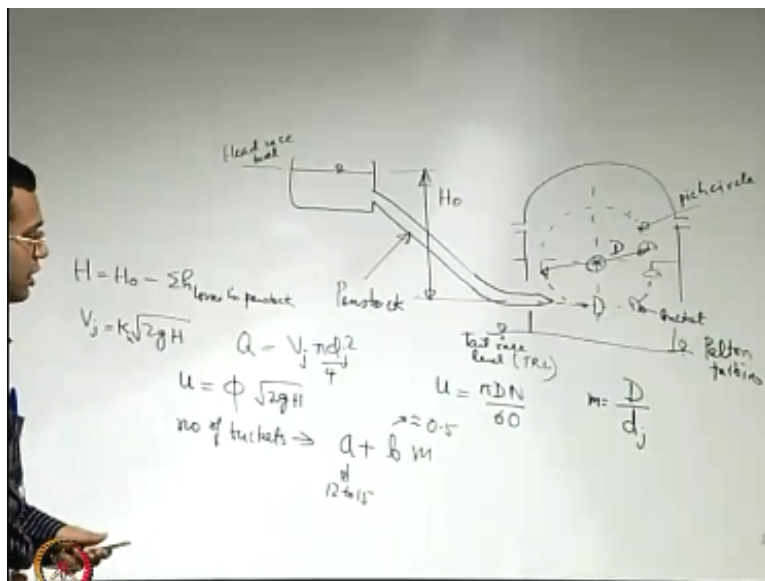 Head race
level
H₀
pich circle
D
Penstock
bucket
Tail race
level (TRL)
Pelton
turbine
H = H₀ − Σh losses in penstock
Vj = Kᵥ√2gH
Q = Vj πdj²/4
u = φ √2gH
u = πDN/60
m = D/dj
no of buckets → a + b m
≈ 0.5
12 to 15